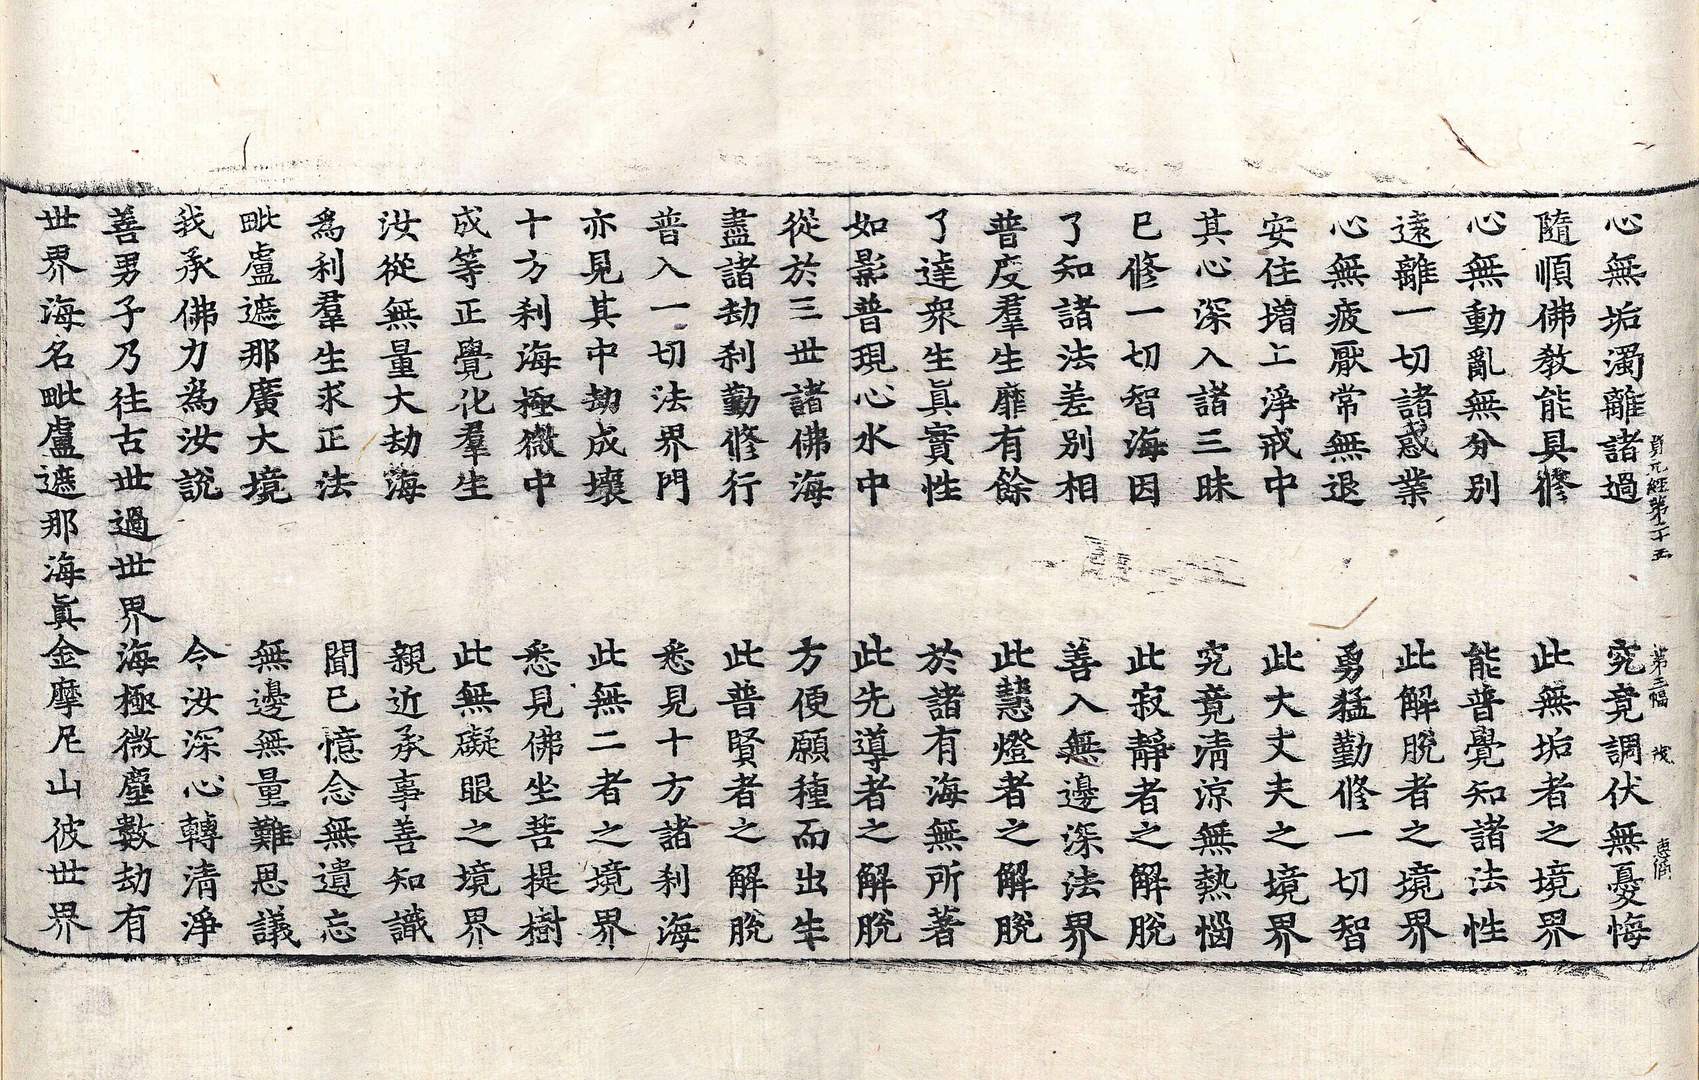 貞元經第二十五 第三幅 茂 惠簡
心無垢濁離諸過 究竟調伏無憂悔
隨順佛教能具修 此無垢者之境界
心無動亂無分別 能普覺知諸法性
遠離一切諸惑業 此解脫者之境界
心無疲厭常無退 勇猛勤修一切智
安住增上淨戒中 此大丈夫之境界
其心深入諸三昧 究竟清涼無熱惱
已修一切智海因 此寂靜者之解脫
了知諸法差別相 善入無邊深法界
普度羣生靡有餘 此慧燈者之解脫
了達衆生眞實性 於諸有海無所著
如影普現心水中 此先導者之解脫
從於三世諸佛海 方便願種而出生
盡諸劫刹勤修行 此普賢者之解脫
普入一切法界門 悉見十方諸刹海
亦見其中劫成壞 此無二者之境界
十方刹海極微中 悉見佛坐菩提樹
成等正覺化羣生 此無礙眼之境界
汝從無量大劫海 親近承事善知識
爲利羣生求正法 聞已憶念無遺忘
毗盧遮那廣大境 無邊無量難思議
我承佛力爲汝說 令汝深心轉清淨
善男子乃往古世過世界海極微塵數劫有
世界海名毗盧遮那海眞金摩尼山彼世界